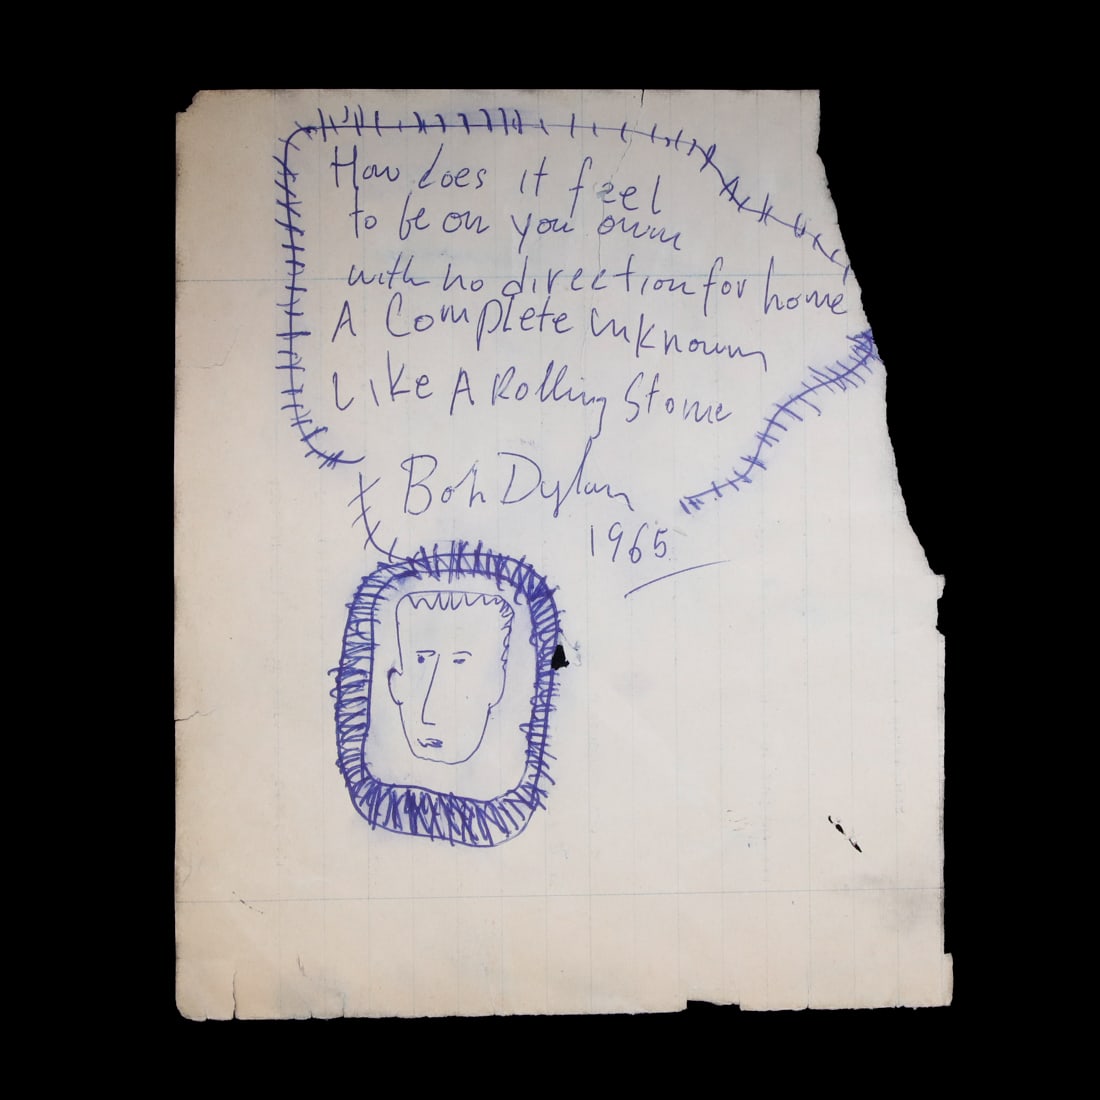 How does it feel
to be on you own
with no direction for home
A Complete unknown
Like A Rolling Stone
Bob Dylan
1965